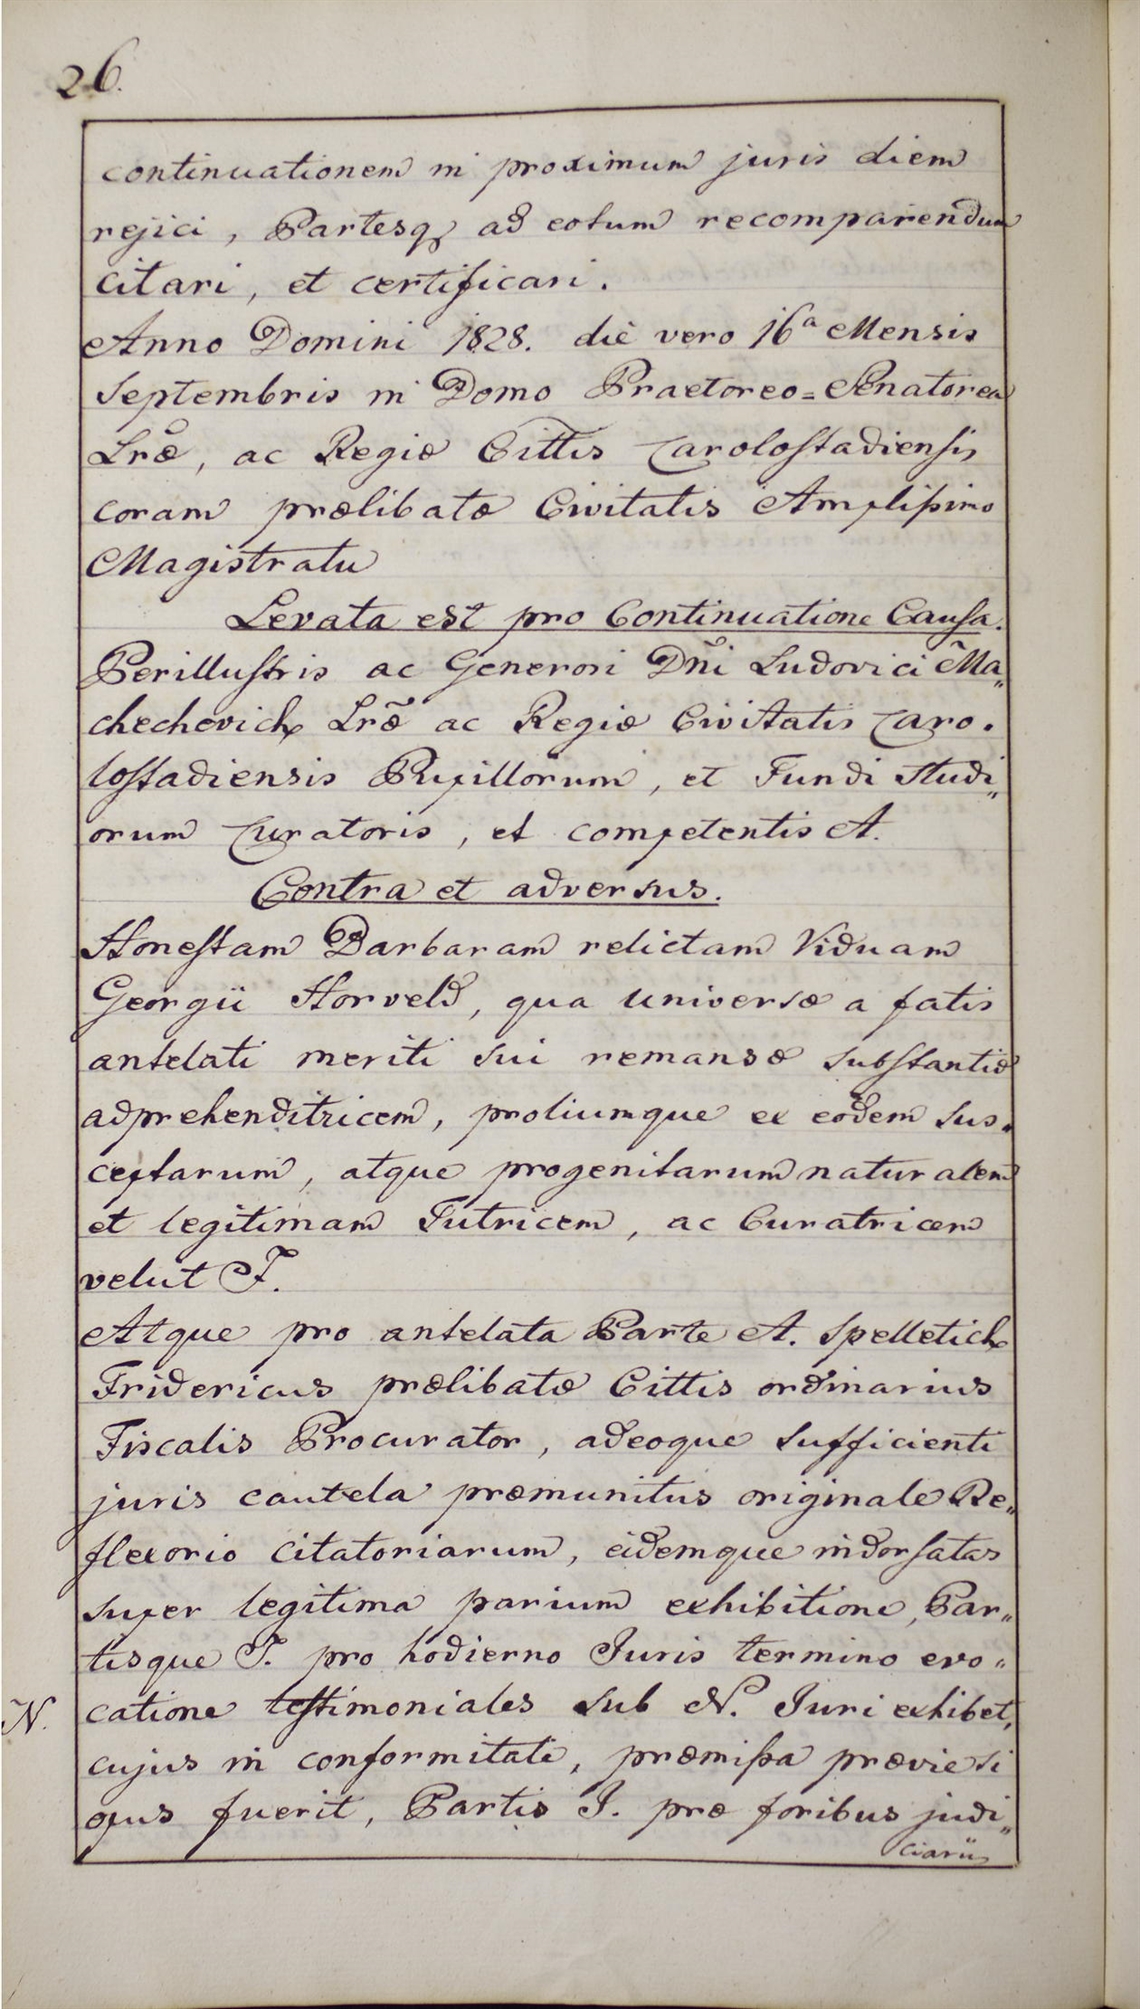 26.
continuationem in proximum juris diem
rejici, Partesq₃ ad eotum recomparendum
citari, et certificari.
Anno Domini 1828. diè vero 16ª Mensis
Septembris in Domo Praetoreo=Senatorea
Lræ, ac Regiæ Cittis Carolostadiensis,
coram prælibatæ Civitatis Amplissimo
Magistratu
Levata est pro Continuatione Causa.
Perillustris ac Generosi Dñi Ludovici Ma„
chechevich Lræ ac Regiæ Civitatis Caro.
lostadiensis Pupillorum, et Fundi Studi„
orum Curatoris, et competentis A.
Contra et adversus.
Honestam Barbaram relictam Viduam
Georgii Horveld, qua universæ a fatis
antelati meriti sui remansæ substantiæ
adprehenditricem, proliumque ex eodem sus„
ceptarum, atque progenitarum naturalem
et legitimam Tutricem, ac Curatricem
velut I.
Atque pro antelata Parte A. Spelletich
Fridericus prælibatæ Cittis ordinarius
Fiscalis Procurator, adeoque sufficienti
juris cautela præmunitus originale Re„
flexorio citatoriarum, eidemque indorsatas
super legitima parium exhibitione, Par„
tisque I. pro hodierno Juris termino evo„
N.
catione testimoniales sub N. Juri exhibet,
cujus in conformitate, præmissa prævie si
opus fuerit, Partis I. præ foribus judi„
ciarii,